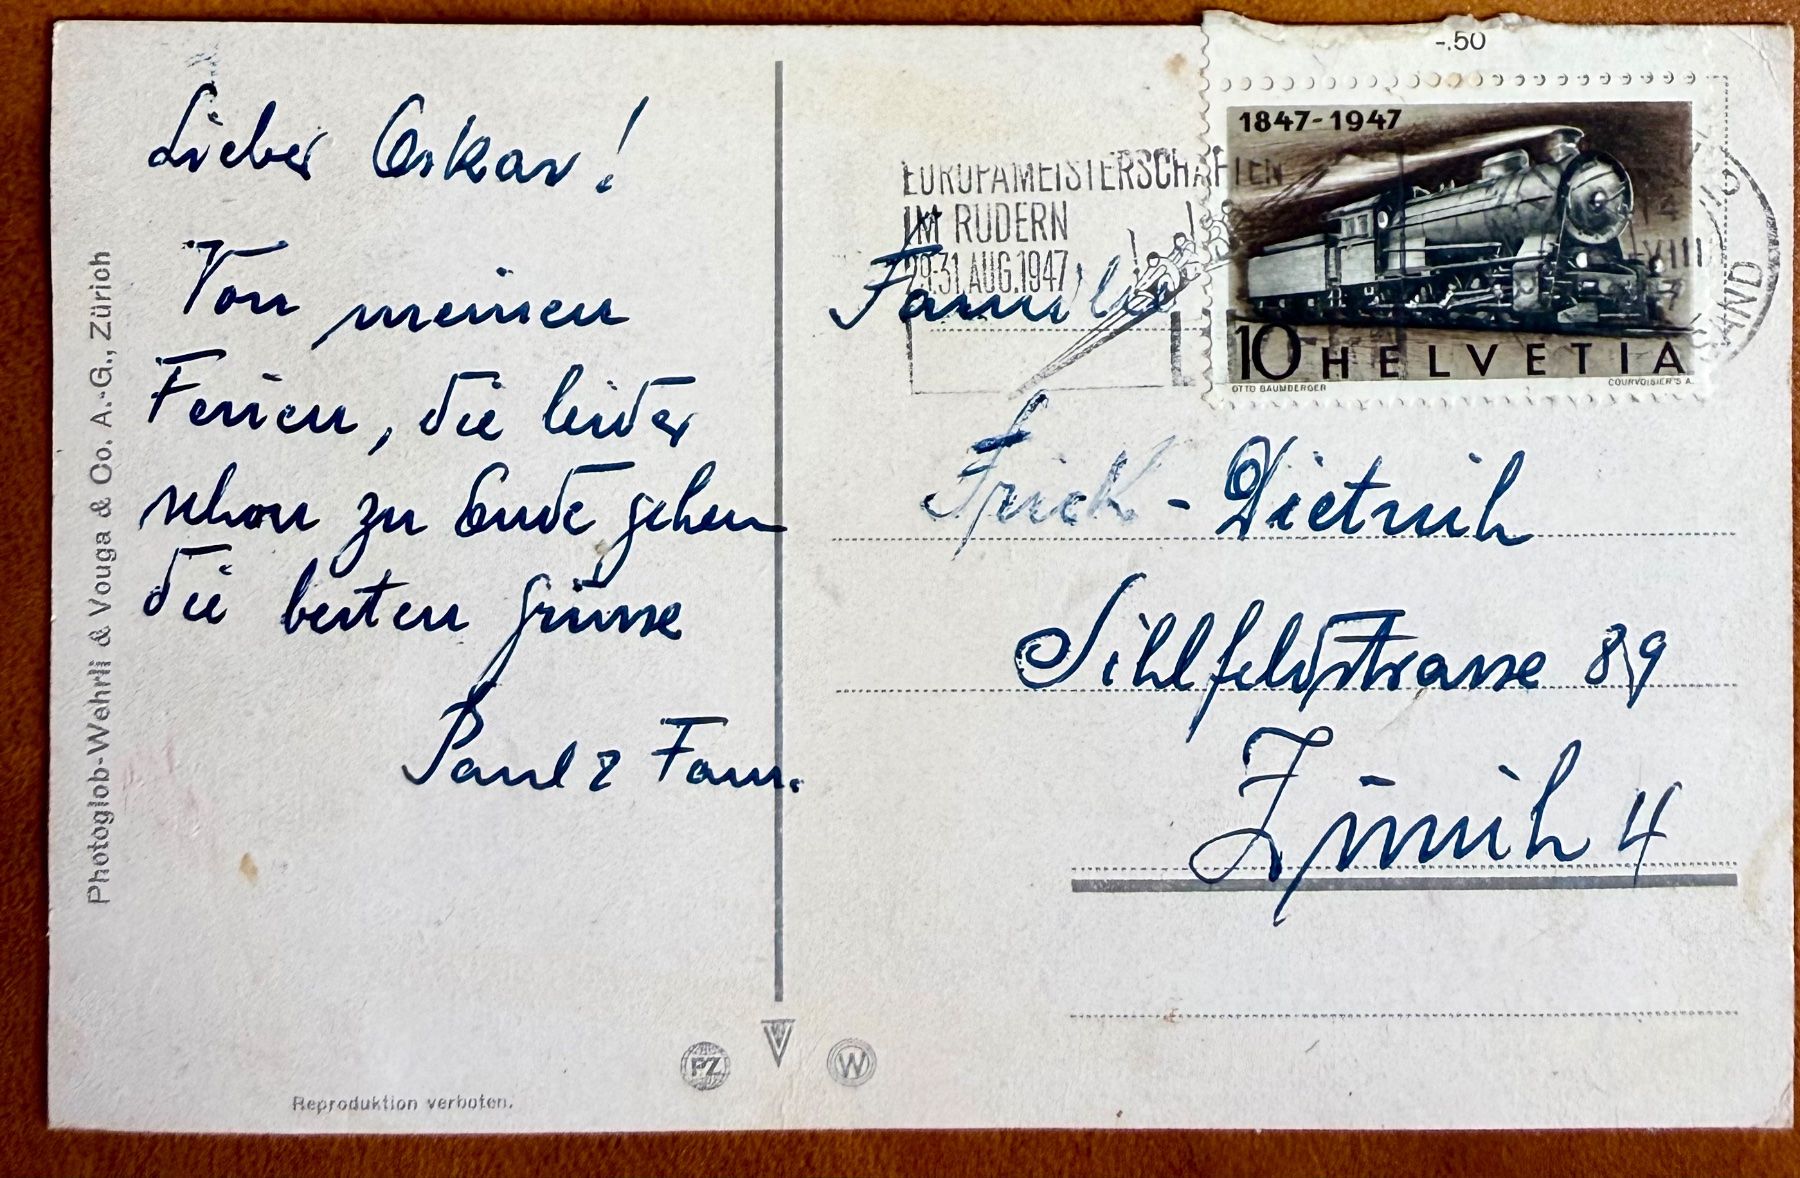 Lieber Oskar!
Von meinen
Ferien, die leider
schon zu Ende gehen
die besten Grüsse
Paul & Fam.
Photoglob-Wehrli & Vouga & Co. A.-G., Zürich
Reproduktion verboten.
PZ
V
W
-.50
1847-1947
10 HELVETIA
OTTO BAUMBERGER
COURVOISIER S.A.
EUROPAMEISTERSCHAFTEN
IM RUDERN
29-31 AUG. 1947
VIII
Familie
Frick-Dietrich
Sihlfeldstrasse 89
Zürich 4